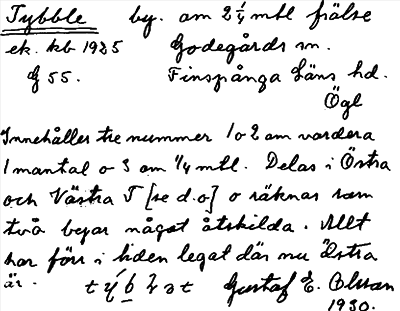 Tybble by. om 2 1/4 mtl frälse
ek. kb 1925 Godegårds sn.
G 55. Finspånga läns hd.
Ögl
Innehåller tre nummer 1 o 2 om vardera
1 mantal o 3 om 1/4 mtl. Delas i Östra
och Västra T [se d.o] o räknas som
två byar något åtskilda. Allt
har förr i tiden legat där nu Östra
är. Gustaf E. Olsson
1930.